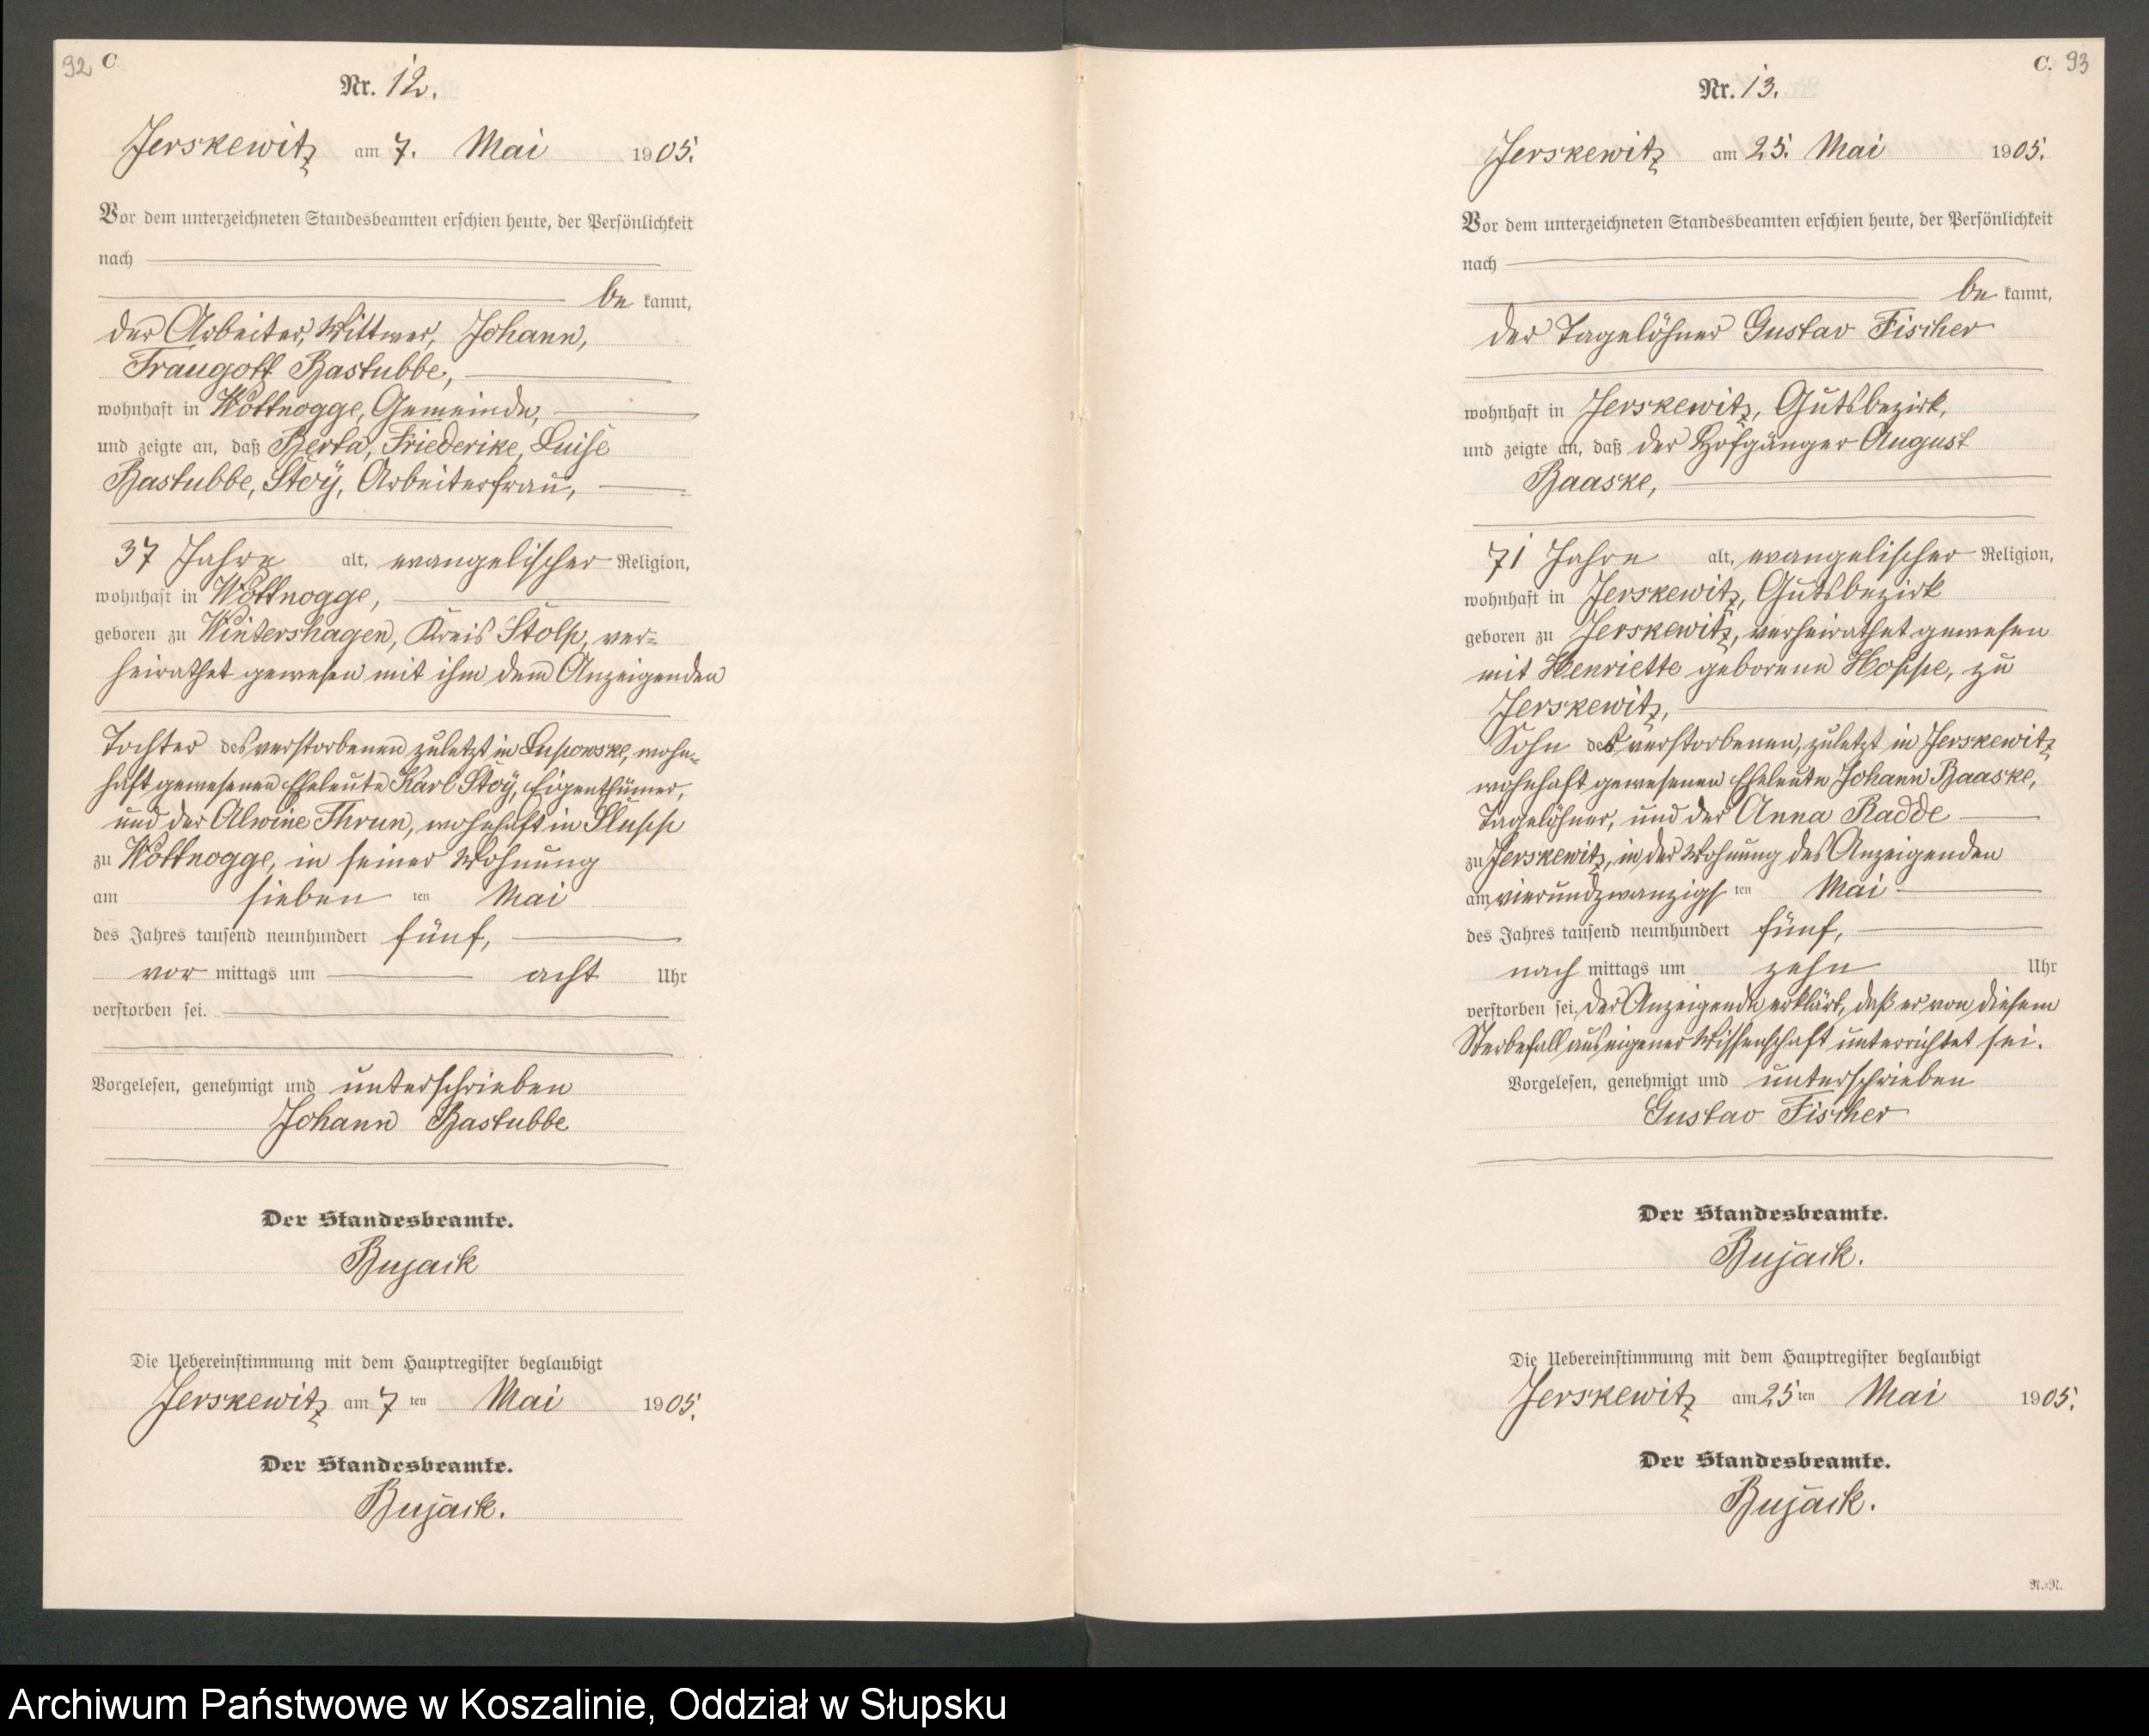 92 C
Nr. 12.
Jerskewitz am 7. Mai 1905.
Vor dem unterzeichneten Standesbeamten erschien heute, der Persönlichkeit
nach
be kannt,
der Arbeiter, Wittwer, Johann,
Traugott Bastubbe,
wohnhaft in Wottnogge, Gemeinde,
und zeigte an, daß Berta, Friederike, Luise
Bastubbe, Stöÿ, Arbeiterfrau,
37 Jahre alt, evangelischer Religion,
wohnhaft in Wottnogge,
geboren zu Wintershagen, Kreis Stolp, ver-
heirathet gewesen mit ihm dem Anzeigenden
Tochter des verstorbenen zuletzt in Luposke, wohn-
haft gewesenen Eheleute Karl Stöÿ, Eigenthümer,
und der Alwine Thrun, wohnhaft in
zu Wottnogge, in seiner Wohnung
am sieben ten Mai
des Jahres tausend neunhundert fünf,
vor mittags um acht Uhr
verstorben sei.
Vorgelesen, genehmigt und unterschrieben
Johann Bastubbe
Der Standesbeamte.
Bujack
Die Uebereinstimmung mit dem Hauptregister beglaubigt
Jerskewitz am 7 ten Mai 1905.
Der Standesbeamte.
Bujack.
C. 93
Nr. 13.
Jerskewitz am 25. Mai 1905.
Vor dem unterzeichneten Standesbeamten erschien heute, der Persönlichkeit
nach
be kannt,
der Tagelöhner Gustav Fischer
wohnhaft in Jerskewitz, Gutsbezirk,
und zeigte an, daß der Hofgänger August
Baaske,
71 Jahre alt, evangelischer Religion,
wohnhaft in Jerskewitz, Gutsbezirk
geboren zu Jerskewitz, verheirathet gewesen
mit Henriette geborene Hoppe, zu
Jerskewitz,
Sohn der verstorbenen, zuletzt in Jerskewitz
wohnhaft gewesenen Eheleute Johann Baaske,
Tagelöhner, und der Anna Radde
zu Jerskewitz, in der Wohnung des Anzeigenden
am vierundzwanzigs ten Mai
des Jahres tausend neunhundert fünf,
nach mittags um zehn Uhr
verstorben sei. Der Anzeigende erklärt, daß er von diesem
Sterbefall aus eigener Wissenschaft unterrichtet sei.
Vorgelesen, genehmigt und unterschrieben
Gustav Fischer
Der Standesbeamte.
Bujack.
Die Uebereinstimmung mit dem Hauptregister beglaubigt
Jerskewitz am 25 ten Mai 1905.
Der Standesbeamte.
Bujack.
N.=N.
Archiwum Państwowe w Koszalinie, Oddział w Słupsku